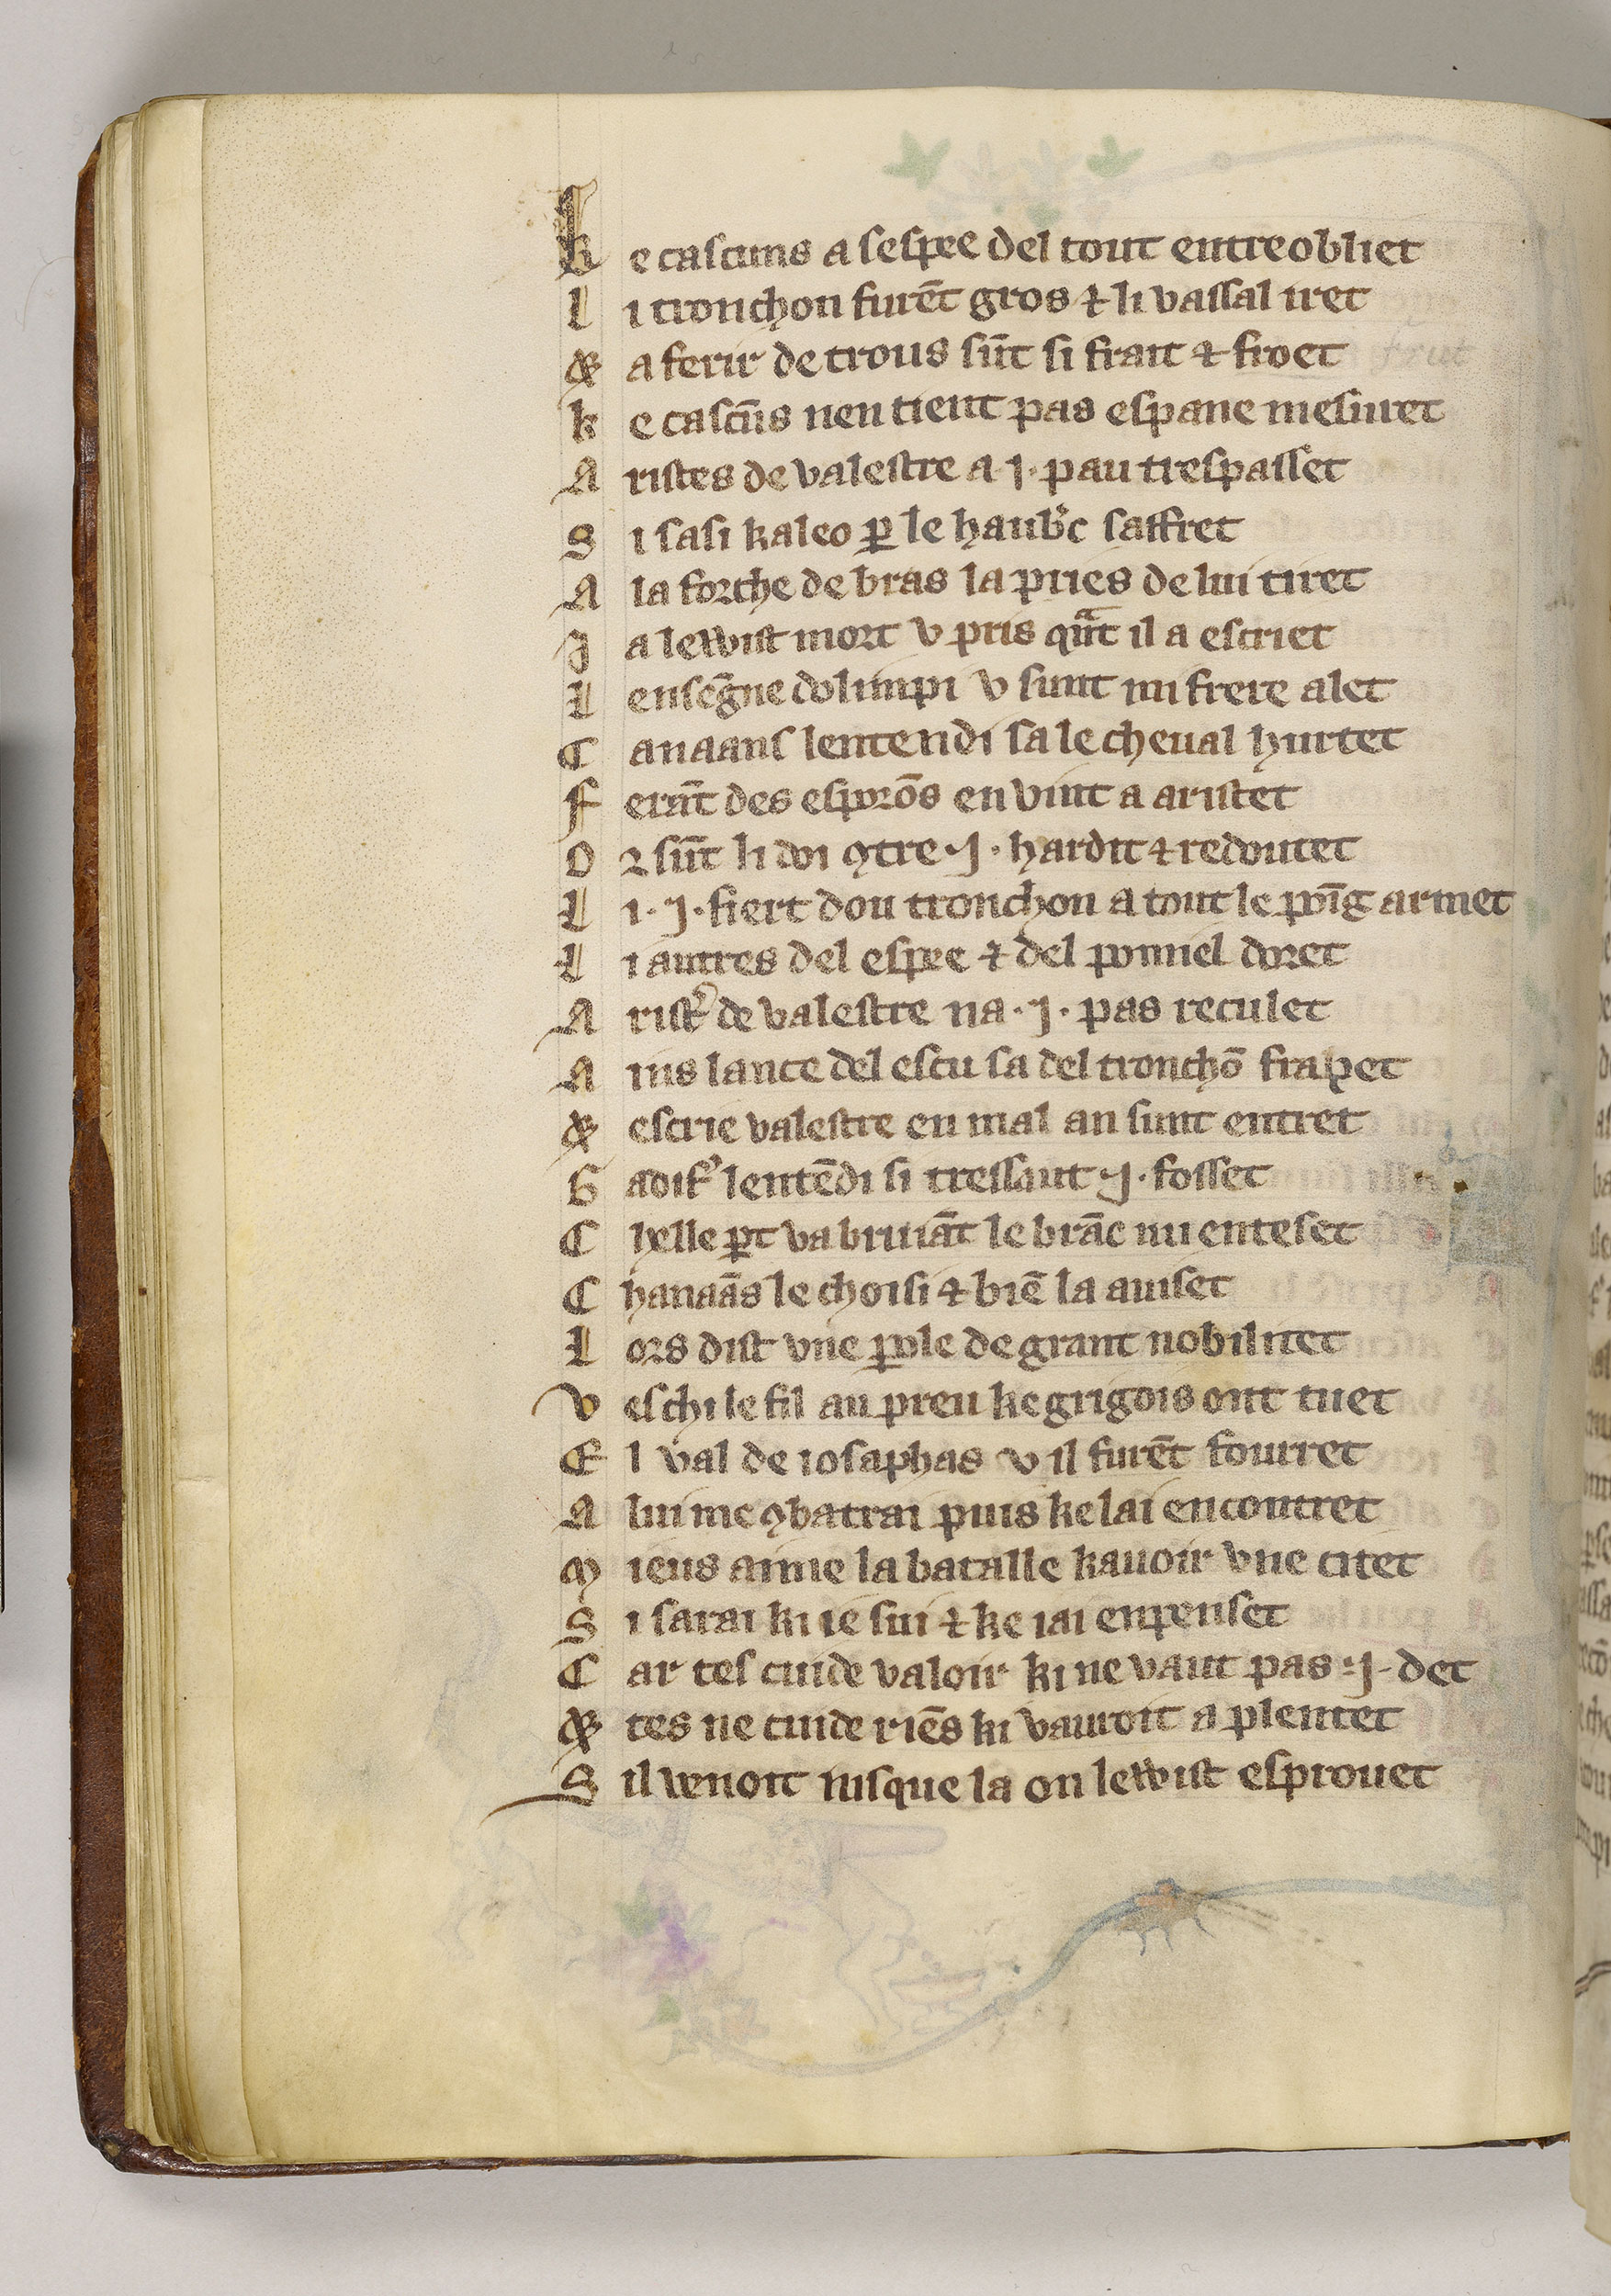 Ke cascuns a sespee del tout entreobliet
Li tronchon furēt gros ⁊ li vassal iret
⁊ a ferir de trous sūt si frait ⁊ froet
Ke cascūs nen tient pas espane mesuret
Aristes de valestre a ·j· pau trespasset
Si sasi kaleo ꝑ le haub̾c saffret
A la forche de bras la pries de lui tiret
Ja lewist mort v pris qᵃ̄t il a escriet
Lensēgne dolimpi v sunt mi frere alet
Canaans lentendi sa le cheual hurtet
Ferāt des esporōs en vint a aristet
Or sūt li doi ꝯtre ·j· hardit ⁊ redoutet
Li ·j· fiert dou tronchon a tout le poīg armet
Li autres del espee ⁊ del ponmel doret
Arist̾ de valestre na ·j· pas reculet
Ains lance del escu sa del tronchō frapet
⁊ escrie valestre en mal an sunt entret
Gadif̾ lentēdi si tressaut ·j· fosset
Chelle ꝑt va bruiāt le brāc nu enteset
Chanaās le choisi ⁊ biē la auiset
Lors dist vne ꝑole de grant nobilitet
Veschi le fil au preu ke grigois ont tuet
El val de iosaphas v il furēt fourret
A lui me ꝯbatrai puis ke lai encontret
Mieus aime la batalle kauoir vne citet
Si sarai ki ie sui ⁊ ke iai enpenset
Car tes cuide valoir ki ne vaut pas ·j· det
⁊ tes ne cuide riēs ki vauroit a plentet
Sil venoit iusque la on lewist esprouet